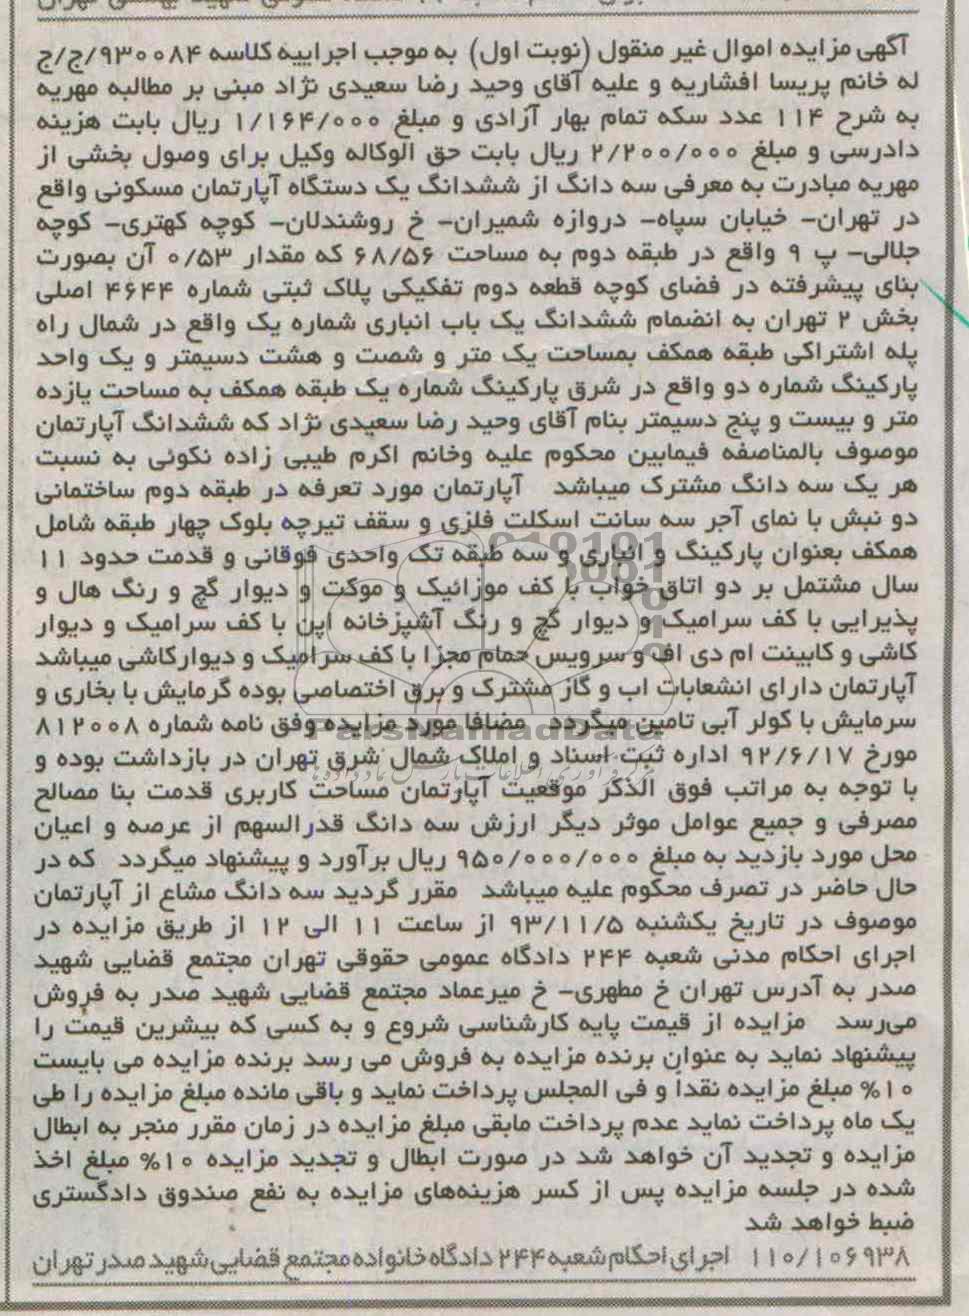 آگهی مزایده اموال غیر منقول (نوبت اول) به موجب اجراییه کلاسه ۹۳۰۰۸۴/ج/ج
له خانم پریسا افشاریه و علیه آقای وحید رضا سعیدی نژاد مبنی بر مطالبه مهریه
به شرح ۱۱۴ عدد سکه تمام بهار آزادی و مبلغ ۱/۱۶۴/۰۰۰ ریال بابت هزینه
دادرسی و مبلغ ۲/۲۰۰/۰۰۰ ریال بابت حق الوکاله وکیل برای وصول بخشی از
مهریه مبادرت به معرفی سه دانگ از ششدانگ یک دستگاه آپارتمان مسکونی واقع
در تهران- خیابان سپاه- دروازه شمیران- خ روشندلان- کوچه کهتری- کوچه
جلالی- پ ۹ واقع در طبقه دوم به مساحت ۶۸/۵۶ که مقدار ۰/۵۳ آن بصورت
بنای پیشرفته در فضای کوچه قطعه دوم تفکیکی پلاک ثبتی شماره ۴۶۴۴ اصلی
بخش ۲ تهران به انضمام ششدانگ یک باب انباری شماره یک واقع در شمال راه
پله اشتراکی طبقه همکف بمساحت یک متر و شصت و هشت دسیمتر و یک واحد
پارکینگ شماره دو واقع در شرق پارکینگ شماره یک طبقه همکف به مساحت یازده
متر و بیست و پنج دسیمتر بنام آقای وحید رضا سعیدی نژاد که ششدانگ آپارتمان
موصوف بالمناصفه فیمابین محکوم علیه وخانم اکرم طیبی زاده نکوئی به نسبت
هر یک سه دانگ مشترک میباشد آپارتمان مورد تعرفه در طبقه دوم ساختمانی
دو نبش با نمای آجر سه سانت اسکلت فلزی و سقف تیرچه بلوک چهار طبقه شامل
همکف بعنوان پارکینگ و انباری و سه طبقه تک واحدی فوقانی و قدمت حدود ۱۱
سال مشتمل بر دو اتاق خواب با کف موزائیک و موکت و دیوار گچ و رنگ هال و
پذیرایی با کف سرامیک و دیوار گچ و رنگ آشپزخانه اپن با کف سرامیک و دیوار
کاشی و کابینت ام دی اف و سرویس حمام مجزا با کف سرامیک و دیوارکاشی میباشد
آپارتمان دارای انشعابات اب و گاز مشترک و برق اختصاصی بوده گرمایش با بخاری و
سرمایش با کولر آبی تامین میگردد مضافا مورد مزایده وفق نامه شماره ۸۱۲۰۰۸
مورخ ۹۲/۶/۱۷ اداره ثبت اسناد و املاک شمال شرق تهران در بازداشت بوده و
با توجه به مراتب فوق الذکر موقعیت آپارتمان مساحت کاربری قدمت بنا مصالح
مصرفی و جمیع عوامل موثر دیگر ارزش سه دانگ قدرالسهم از عرصه و اعیان
محل مورد بازدید به مبلغ ۹۵۰/۰۰۰/۰۰۰ ریال برآورد و پیشنهاد میگردد که در
حال حاضر در تصرف محکوم علیه میباشد مقرر گردید سه دانگ مشاع از آپارتمان
موصوف در تاریخ یکشنبه ۹۳/۱۱/۵ از ساعت ۱۱ الی ۱۲ از طریق مزایده در
اجرای احکام مدنی شعبه ۲۴۴ دادگاه عمومی حقوقی تهران مجتمع قضایی شهید
صدر به آدرس تهران خ مطهری- خ میرعماد مجتمع قضایی شهید صدر به فروش
می‌رسد مزایده از قیمت پایه کارشناسی شروع و به کسی که بیشرین قیمت را
پیشنهاد نماید به عنوان برنده مزایده به فروش می رسد برنده مزایده می بایست
۱۰% مبلغ مزایده نقداً و فی المجلس پرداخت نماید و باقی مانده مبلغ مزایده را طی
یک ماه پرداخت نماید عدم پرداخت مابقی مبلغ مزایده در زمان مقرر منجر به ابطال
مزایده و تجدید آن خواهد شد در صورت ابطال و تجدید مزایده ۱۰% مبلغ اخذ
شده در جلسه مزایده پس از کسر هزینه‌های مزایده به نفع صندوق دادگستری
ضبط خواهد شد
۱۱۰/۱۰۶۹۳۸ اجرای احکام شعبه ۲۴۴ دادگاه خانواده مجتمع قضایی شهید صدر تهران